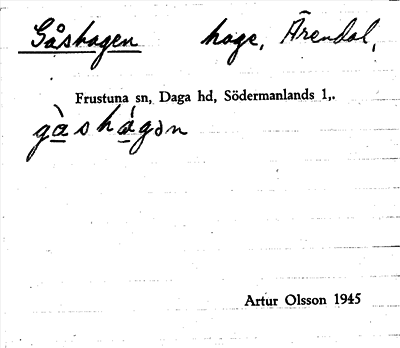 Gåshagen hage, Ärendal,
Frustuna sn, Daga hd, Södermanlands l,.
gàshágən
Artur Olsson 1945